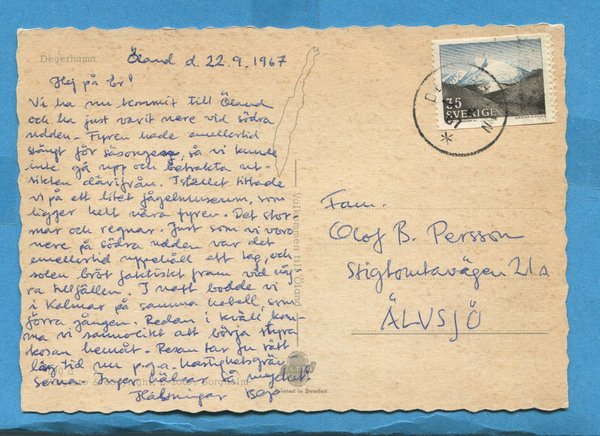 Degerhamn
Öland d. 22.9.1967
Hej på Er!
Vi ha nu kommit till Öland
och ha just varit nere vid södra
udden. Fyren hade emellertid
stängt för säsongen, så vi kunde
inte gå upp och betrakta ut-
sikten därifrån. Istället tittade
vi på ett litet fågelmuseum, som
ligger helt nära fyren. Det stor-
mar och regnar. Just som vi voro
nere på södra udden var det
emellertid uppehåll ett tag, och
solen bröt faktiskt fram vid någ
ra tillfällen. I natt bodde vi
i Kalmar på samma hotell, som
förra gången. Redan i kväll kom-
ma vi sannolikt att börja styra
kosan hemåt. Resan tar ju rätt
lång tid nu p.g.a. hastighetsgrän
serna. Inger hälsar så mycket
Hälsningar
Välkommen till Öland
35
SVERIGE
Fam.
Olof B. Persson
Stigtomtavägen 21A
ÄLVSJÖ
Printed in Sweden